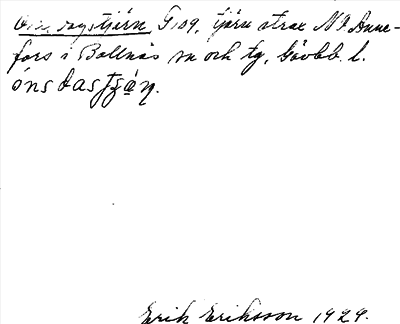 Onsdagstjärn G 109, tjärn strax N I Anne-
fors i Bollnäs sn och tg, Gävleb. l.
ónsdastjän.
Erik Eriksson 1929.